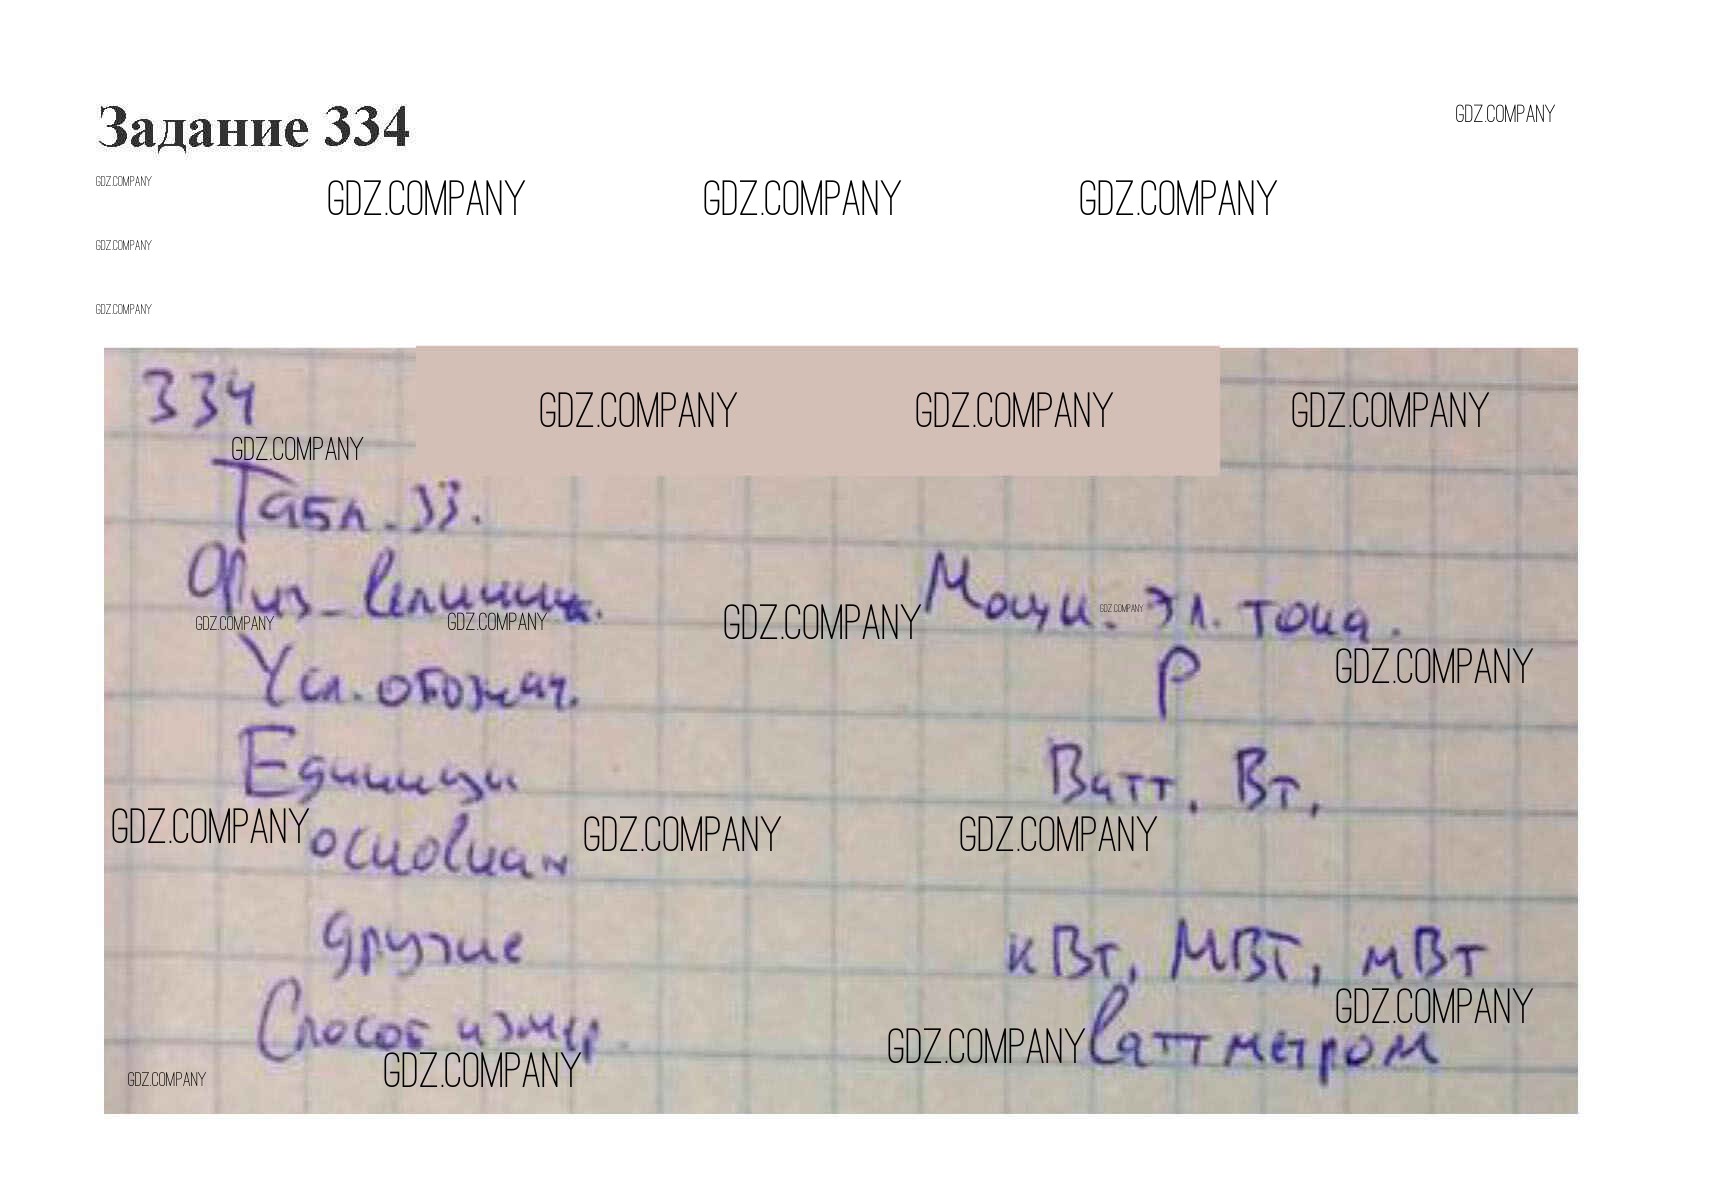 Задание 334
GDZ.COMPANY
GDZ.COMPANY
GDZ.COMPANY GDZ.COMPANY GDZ.COMPANY
GDZ.COMPANY
GDZ.COMPANY
334
GDZ.COMPANY GDZ.COMPANY GDZ.COMPANY
GDZ.COMPANY
Табл. 33.
Физ. величина. Мощн. эл. тока.
GDZ.COMPANY GDZ.COMPANY GDZ.COMPANY GDZ.COMPANY
Усл. обознач. P
GDZ.COMPANY
Единицы Ватт, Вт,
GDZ.COMPANY GDZ.COMPANY GDZ.COMPANY
основная
другие кВт, МВт, мВт
GDZ.COMPANY
Способ измер. ваттметром
GDZ.COMPANY
GDZ.COMPANY GDZ.COMPANY